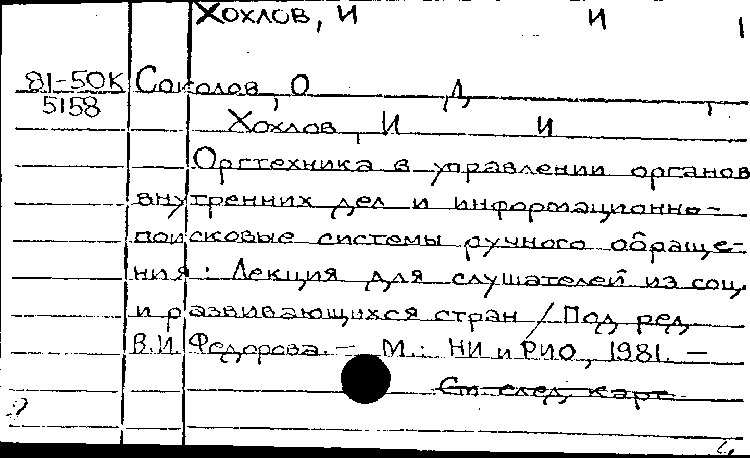 Хохлов, И И
81-50К Соколов, О Д
5158
Хохлов, И И
Оргтехника в управлении органов
внутренних дел и информационно-
поисковые системы ручного обраще-
ния: Лекция для слушателей из соц.
и развивающихся стран / Под ред.
В.И. Федорова. – М.: НИ и РИО, 1981. –
См. след. карт.